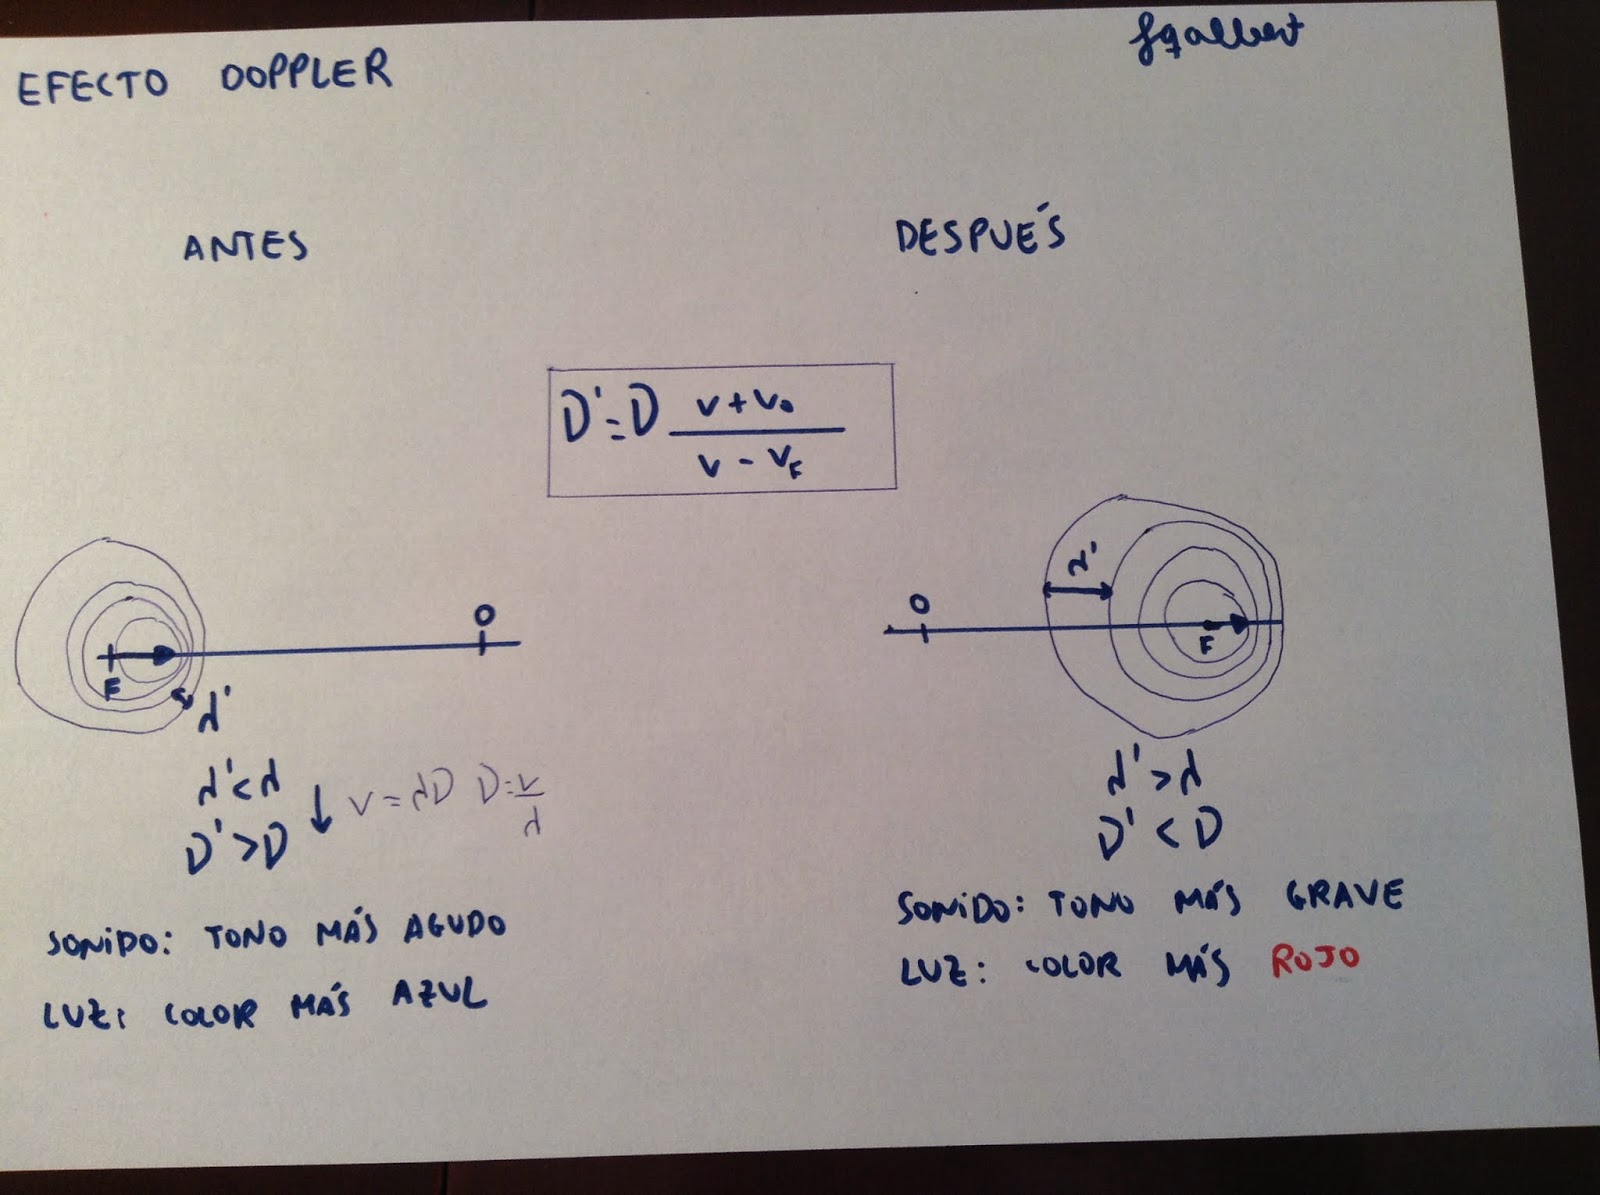 EFECTO DOPPLER
fqalbert
ANTES
DESPUÉS
D' = D (v + v₀) / (v - v_F)
O
F
λ'
λ' < λ
D' > D
↓ v = λD D = v/λ
SONIDO: TONO MÁS AGUDO
LUZ: COLOR MÁS AZUL
λ'
O
F
λ' > λ
D' < D
SONIDO: TONO MÁS GRAVE
LUZ: COLOR MÁS ROJO